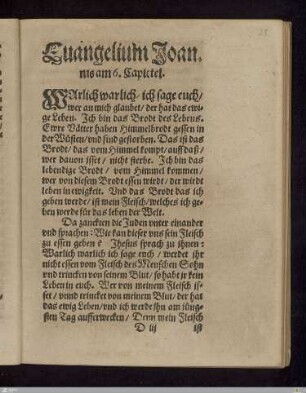 Euangelium Joan.
nis am 6. Capittel.
WArlich warlich/ ich sage euch/
wer an mich glaubet/ der hat das ewi-
ge Leben. Ich bin das Brodt des Lebens.
Ewre Vätter haben Himmelbrodt gessen in
der Wüsten/ vnd sind gestorben. Das ist das
Brodt/ das vom Himmel kompt/ auff daß/
wer dauon isset/ nicht sterbe. Ich bin das
lebendige Brodt/ vom Himmel kommen/
wer von diesem Brodt essen wirdt/ der wirdt
leben in ewigkeit. Vnd das Brodt das ich
geben werde/ ist mein Fleisch/ welches ich ge-
ben werde für das leben der Welt.
Da zanckten die Juden vnter einander
vnd sprachen: Wie kan dieser vns sein Fleisch
zu essen geben? Jhesus sprach zu jhnen:
Warlich warlich ich sage euch/ werdet jhr
nicht essen vom Fleisch des Menschen Sohn
vnd trincken von seinem Blut/ so habt jr kein
Leben in euch. Wer von meinem Fleisch is-
set/ vnnd trincket von meinem Blut/ der hat
das ewig Leben/ vnd ich werde jhn am jüng-
sten Tag aufferwecken/ Denn mein Fleisch
D iij
ist